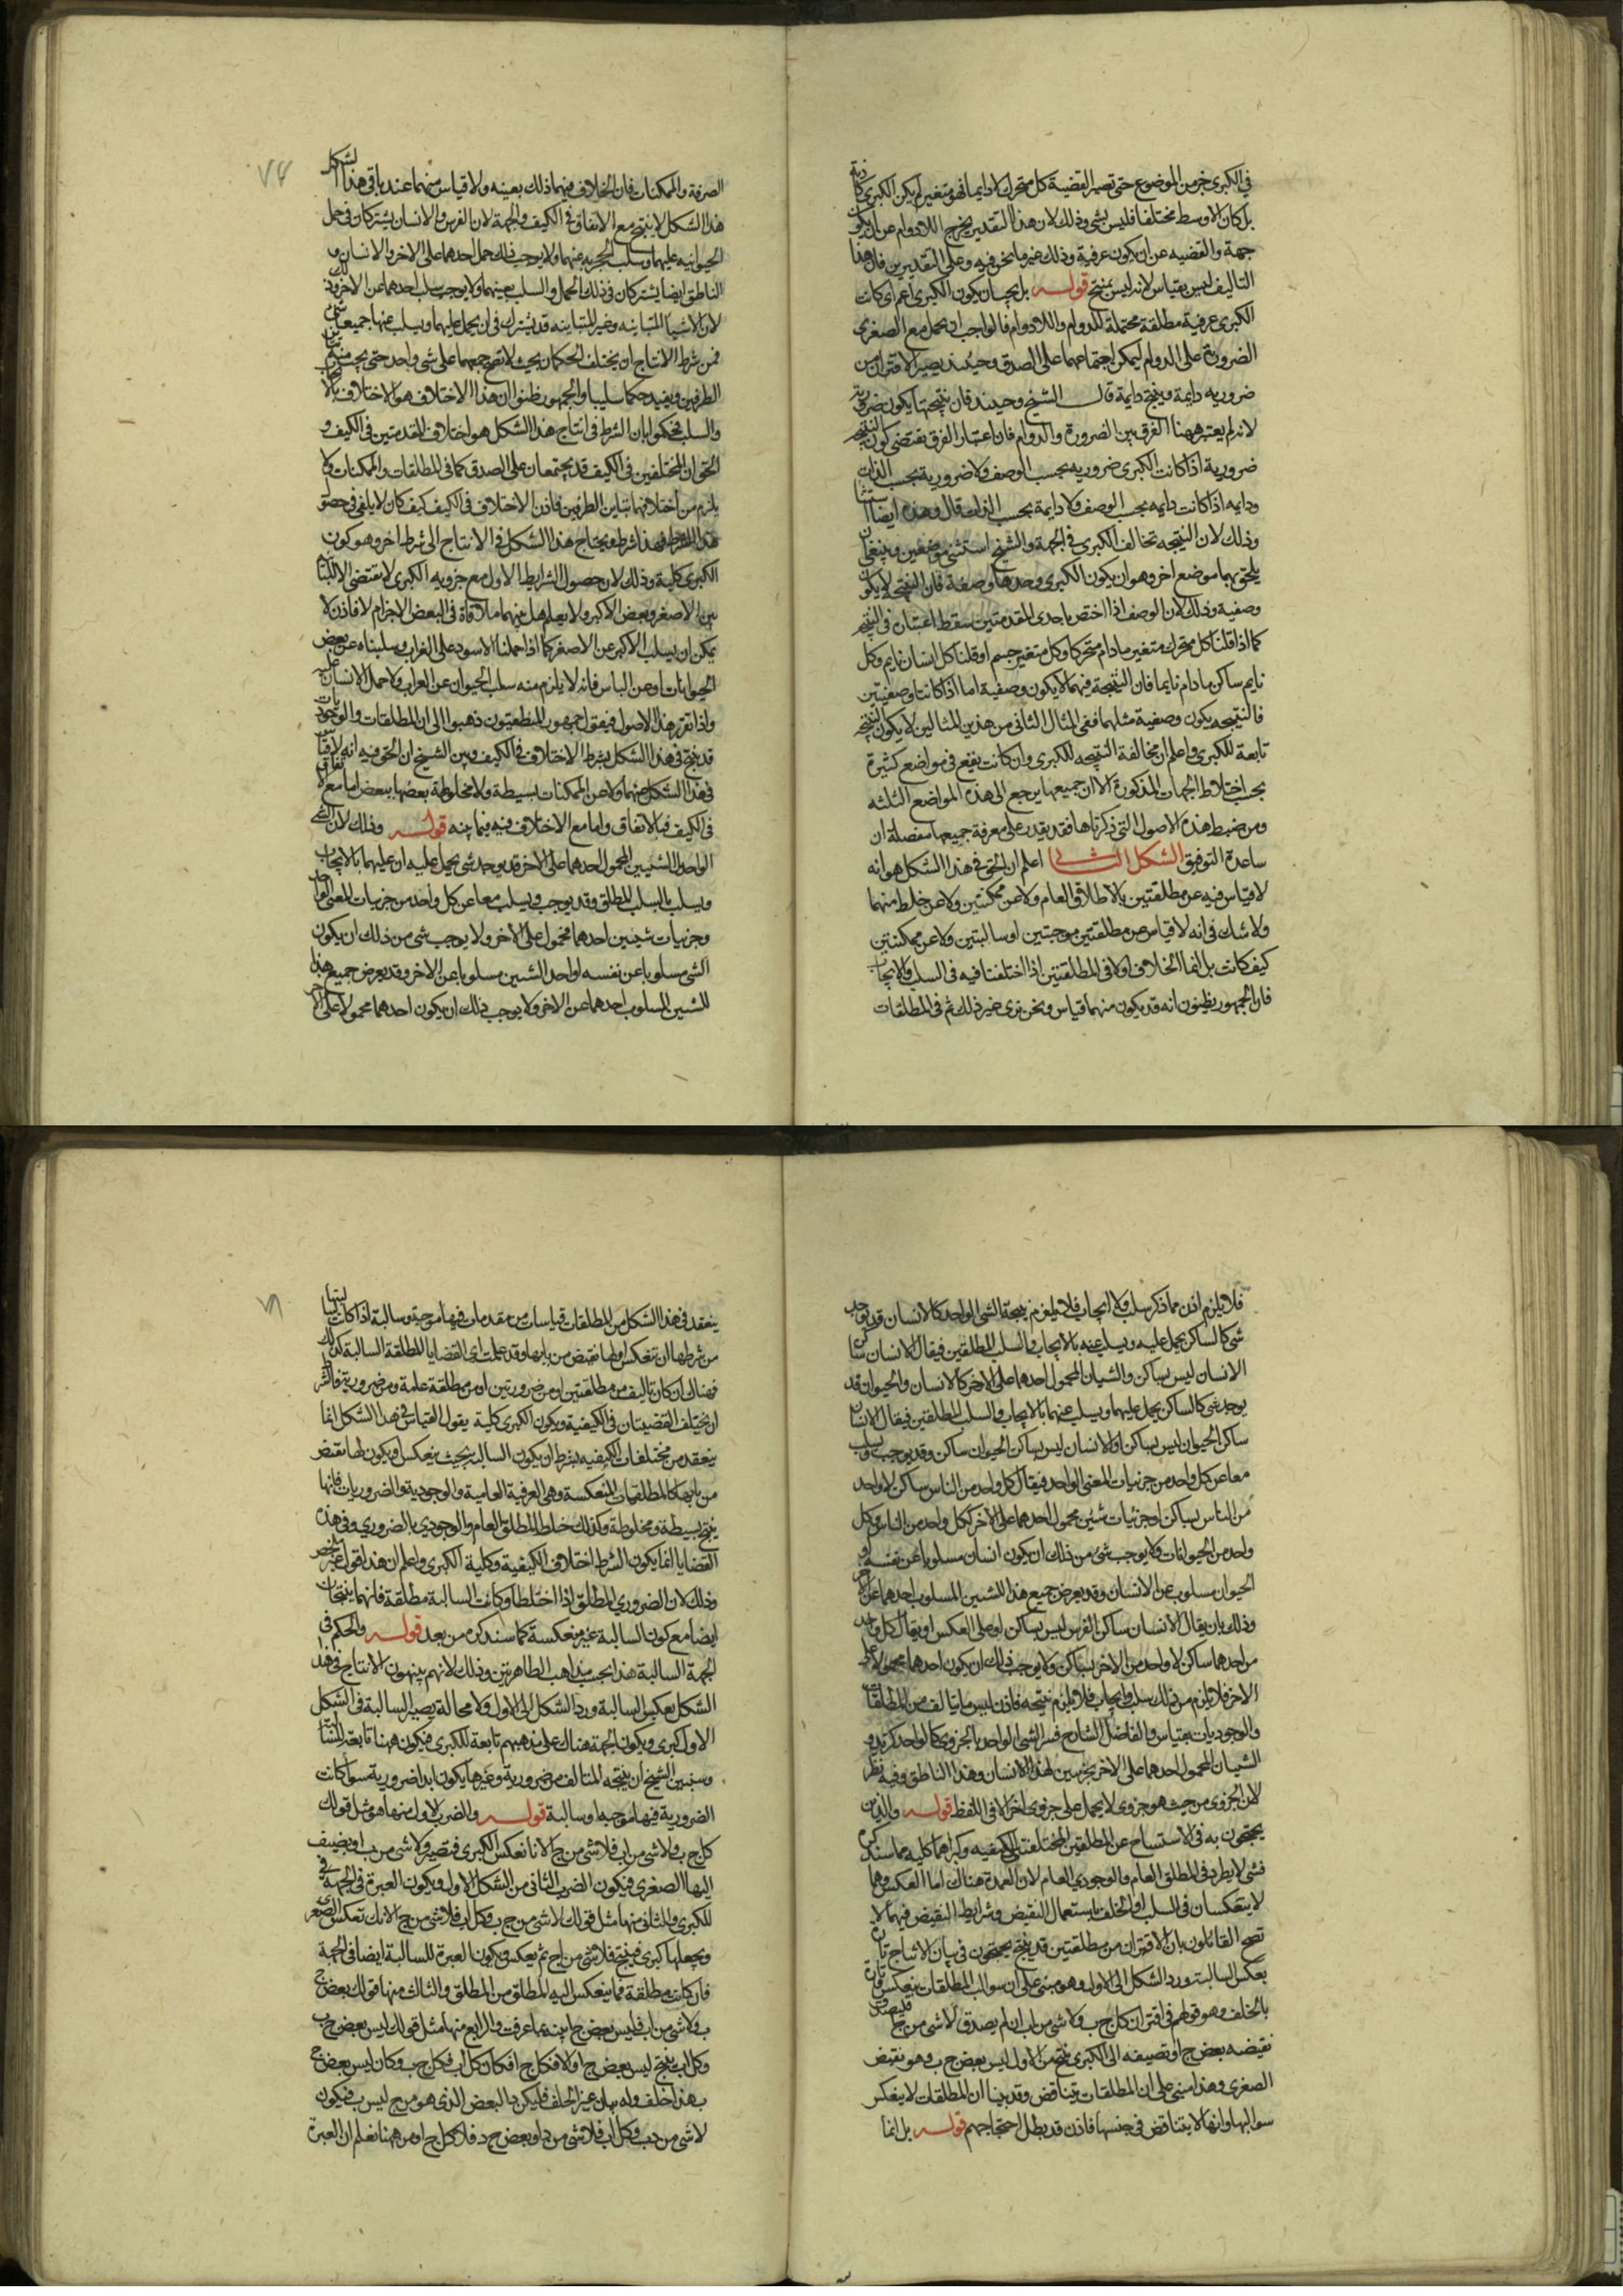 في الكبرى جزء من الموضوع حتى تصير القضية كل متحرك لا دايما فهو متغير لم يكن الكبرى كاذبة
بل كان الاوسط مختلفا فليس بشي وذلك لان هذا التقدير يخرج اللادوام عن ان يكون
جهة والقضيه عن ان يكون عرفية وذلك غير ما نحن فيه وعلى التقديرين فان هذا
التاليف ليس بقياس لانه ليس بمنتج قوله بل يجب ان يكون الكبرى اعم اي كانت
الكبرى عرفية مطلقة محتملة للدوام واللادوام فالواجب ان يحمل مع الصغرى
الضرورية على الدوام ليمكن اجتماعهما على الصدق وحينئذ يصير الاقتران من
ضروريه دايمة وينتج دايمة قال الشيخ وحينئذ فان نتيجتها يكون ضرورية
لانه لم يعتبر ههنا الفرق بين الضرورة والدوام فان اعتبار الفرق يقتضى كون النتيجة
ضرورية اذا كانت الكبرى ضروريه بحسب الوصف ولا ضرورية بحسب الذات
ودايمه اذا كانت دايمه بحسب الوصف ولا دايمة بحسب الذات قال وهذه ايضا استثنا
وذلك لان النتيجه تخالف الكبرى في الجهة والشيخ استثنى موضعين وينبغي ان
يلحق بهما موضع اخر وهو ان يكون الكبرى وحدها وصفية فان النتيجه لا يكون
وصفية وذلك لان الوصف اذا اختص باحدى المقدمتين سقط اعتباره في النتيجة
كما اذا قلنا كل متحرك متغير ما دام متحركا وكل متغير جسم او قلنا كل انسان نايم وكل
نايم ساكن ما دام نايما فان النتيجة فيهما لا يكون وصفية اما اذا كانتا وصفيتين
فالنتيجه يكون وصفية مثلهما ففي المثال الثاني من هذين المثالين لا يكون النتيجة
تابعة للكبرى واعلم ان مخالفة النتيجه للكبرى وان كانت يقع في مواضع كثيرة
بحسب اختلاط الجهات المذكورة الا ان جميعها يرجع الى هذه المواضع الثلثه
ومن ضبط هذه الاصول التي ذكرناها فقد يقدر على معرفة جميعها مفصلة ان
ساعده التوفيق الشكل الثاني اعلم ان الحق في هذا الشكل هو انه
لا قياس فيه عن مطلقتين بالاطلاق العام ولا عن ممكنتين ولا عن خلط منهما
ولا شك في انه لا قياس عن مطلقتين موجبتين او سالبتين ولا عن ممكنتين
كيف كانت بل انما الخلاف اولا في المطلقتين اذا اختلفتا فيه في السلب والايجاب
فان الجمهور يظنون انه قد يكون منهما قياس ونحن نرى غير ذلك ثم في المطلقات
الصرفة والممكنات فان الخلاف فيهما ذلك بعينه ولا قياس منهما عندنا في هذا الشكل
هذا الشكل لا ينتج مع الاتفاق في الكيف والجهة لان الفرس والانسان يشتركان في حمل
الحيوانيه عليهما وسلب الحجرية عنهما ولا يوجب ذلك حمل احدهما على الاخر والانسان و
الناطق ايضا يشتركان في ذلك الحمل والسلب بعينهما ولا يوجب سلب احدهما عن الاخر وذلك
لان الاشيا المتباينه وغير المتباينه قد يشترك في ان يحمل عليهما ويسلب عنها جميعا شي
فمن شرط الانتاج ان يختلف الحكمان بحيث لا يصح جمعهما على شي واحد حتى يجب منه تباين
الطرفين ويفيد حكما سلبيا والجمهور ظنوا ان هذا الاختلاف هو الاختلاف بالايجاب
والسلب فحكموا بان الشرط في انتاج هذا الشكل هو اختلاف المقدمتين في الكيف و
الحق ان المختلفين في الكيف قد يجتمعان على الصدق كما في المطلقات والممكنات ولا
يلزم من اختلافهما تباين الطرفين فاذن الاختلاف في الكيف كيف كان لا يكفي في حصول
هذا الشرط فهذا شرط ويحتاج هذا الشكل في الانتاج الى شرط اخر وهو كون
الكبرى كلية وذلك لان حصول الشرايط الاول مع جزويه الكبرى لا يقتضى الا التباين
بين الاصغر وبعض الاكبر ولا يعلم هل بينهما ملاقاة في البعض الاخر ام لا فاذن لا
يمكن ان يسلب الاكبر عن الاصغر كما اذا حملنا الاسود على الغراب وسلبناه عن بعض
الحيوانات او عن الناس فانه لا يلزم منه سلب الحيوان عن الغراب ولا حمل الانسان عليه
واذا تقرر هذا الاصول فنقول جمهور المنطقيون ذهبوا الى ان المطلقات والوجوديات
قد ينتج في هذا الشكل بشرط الاختلاف في الكيف وبين الشيخ ان الحق فيه انه لا قياس
في هذا الشكل عنهما ولا عن الممكنات بسيطة ولا مخلوطة بعضها ببعض اما مع الاتفاق
في الكيف فبالاتفاق واما مع الاختلاف فيه فبما بينه قوله وذلك لان الشي
الواحد او الشيين المحمول احدهما على الاخر قد يوجد شي يحمل عليه او عليهما بالايجاب
ويسلب بالسلب المطلق وقد يوجب ويسلب معا عن كل واحد من جزيات المعنى الواحد
وجزيات شيئين احدهما محمول على الاخر ولا يوجب شي من ذلك ان يكون
الشي مسلوبا عن نفسه او احد الشيين مسلوبا عن الاخر وقد يعرض جميع هذا
للشيين المسلوب احدهما عن الاخر ولا يوجب ذلك ان يكون احدهما محمولا على الاخر
فلا يلزم اذن مما ذكر سلب ولا ايجاب فلا يلزم نتيجة الشي الواحد كالانسان قد يوجد
شي كالساكن يحمل عليه ويسلب عنه بالايجاب والسلب المطلقين فيقال الانسان ساكن
الانسان ليس بساكن والشيان المحمول احدهما على الاخر كالانسان والحيوان قد
يوجد شي كالساكن يحمل عليهما ويسلب عنهما بالايجاب والسلب المطلقين فيقال الانسان
ساكن الحيوان ليس بساكن او الانسان ليس بساكن الحيوان ساكن وقد يوجب ويسلب
معا عن كل واحد من جزئيات المعنى الواحد فيقال كل واحد من الناس ساكن لا واحد
من الناس بساكن او جزئيات شيئين محمول احدهما على الاخر ككل واحد من الناس وكل
واحد من الحيوانات ولا يوجب شي من ذلك ان يكون انسان مسلوبا عن نفسه او
الحيوان مسلوب عن الانسان وقد يعرض جميع هذا للشيين المسلوب احدهما عن الاخر
وذلك بان يقال الانسان ساكن الفرس ليس بساكن او على العكس او يقال كل واحد
من احدهما ساكن لا واحد من الاخر بساكن ولا يوجب ذلك ان يكون احدهما محمولا على
الاخر فلا يلزم من ذلك سلب وايجاب فلا يلزم نتيجه فاذن ليس ما يتالف من المطلقات
والوجوديات بقياس والفاضل الشارح فسر الشي الواحد بالجزوى كالواحد كزيد و
الشيان المحمول احدهما على الاخر بجزيين لهذا الانسان وهذا الناطق وفيه نظر
لان الجزوى من حيث هو جزوى لا يحمل على جزوى اخر الا في اللفظ قوله والذين
يحتجون به في الاستنتاج عن المطلقتين المختلفتى الكيفيه وكبراهما كليه مما سنذكره
فشي لا يطرد في المطلق العام والوجودي العام لان العمدة هناك اما العكس وهما
لا ينعكسان في السلب او الخلف باستعمال النقيض وشرايط النقيض فيهما لا
تصح القائلون بان الاقتران من مطلقتين قد ينتج يحتجون في بيان الانتاج تارة
بعكس السالبة ورد الشكل الى الاول وهو مبني على ان سوالب المطلقات ينعكس وتارة
بالخلف وهو قولهم في اقتران كل ج ب ولا شي من ا ب ان لم يصدق لا شي من ج ا فليصدق
نقيضه بعض ج ا ونضيفه الى الكبرى ينتج من الاول ليس بعض ج ب وهو نقيض
الصغرى وهذا مبني على ان المطلقات يتناقض وقد بينا ان المطلقات لا ينعكس
سوالبها وانها لا يتناقض في جنسها فاذن قد بطل احتجاجهم قوله بل انما
ينعقد في هذا الشكل من المطلقات قياسات من مقدمات فيها موجبة وسالبة اذا كانت سالبتها
من شرطها ان تنعكس او لها نقيض من بابها وقد علمت اى القضايا المطلقة السالبة كذلك
فهنالك ان كان تاليف من مطلقتين او من ضروريتين او من مطلقة عامة ومن ضرورية فالشرط
ان يختلف القضيتان في الكيفية ويكون الكبرى كلية يقول القياس في هذا الشكل انما
ينعقد من مختلفات الكيفيه بشرط ان يكون السالبة بحيث ينعكس او يكون لها نقيض
من بابها كالمطلقات المنعكسة وهي العرفية العامية والوجودية والضروريات فانها
ينتج بسيطة ومخلوطة وكذلك خلط المطلق العام والوجودي بالضروري وفي هذه
القضايا انما يكون الشرط اختلاف الكيفية وكلية الكبرى واعلم ان هذا قول غير ملخص
وذلك لان الضروري والمطلق اذا اختلطا وكانت السالبة مطلقة فانهما ينتجان
ايضا مع كون السالبة غير منعكسة كما سنذكره من بعد قوله والحكم في
الجهة السالبة هذا بحسب مذاهب الظاهريين وذلك لانهم يبينون الانتاج في هذا
الشكل بعكس السالبة ورد الشكل الى الاول ولا محالة يصير السالبة في الشكل
الاول كبرى ويكون الجهة هناك على مذهبهم تابعة للكبرى فيكون ههنا تابعة للسالبة
وسنبين الشيخ ان نتيجه المتالف من ضرورية وغيرها يكون ابدا ضرورية سوا كانت
الضرورية فيها موجبه او سالبة قوله والضرب الاول منها هو مثل قولك
كل ج ب ولا شي من ا ب فلا شي من ج ا لانا نعكس الكبرى فتصير ولا شي من ب ا ويضيف
اليها الصغرى فيكون الضرب الثاني من الشكل الاول ويكون العبرة في الجهة في
للكبرى والثاني منها مثل قولك لا شي من ج ب وكل ا ب فلا شي من ج ا لانك تعكس الصغرى
ويجعلها كبرى فينتج فلا شي من ا ج ثم يعكس ويكون العبرة للسالبة ايضا في الجهة
فان كانت مطلقة فما ينعكس اليه المطلق من المطلق والثالث منها قولك بعض ج
ب ولا شي من ا ب فليس بعض ج ا بينه بما عرفت والرابع منها مثل قولك ليس بعض ج ب
وكل ا ب ينتج ليس بعض ج ا والا فكل ج ا فكان كل ا ب فكل ج ب وكان ليس بعض ج
ب هذا خلف وله بيان غير الخلف فليكن د البعض الذي هو من ج ليس ب فيكون
لا شي من د ب وكل ا ب فلا شي من د ا وبعض ج د فلا كل ج ا ومن ههنا نعلم ان العبرة